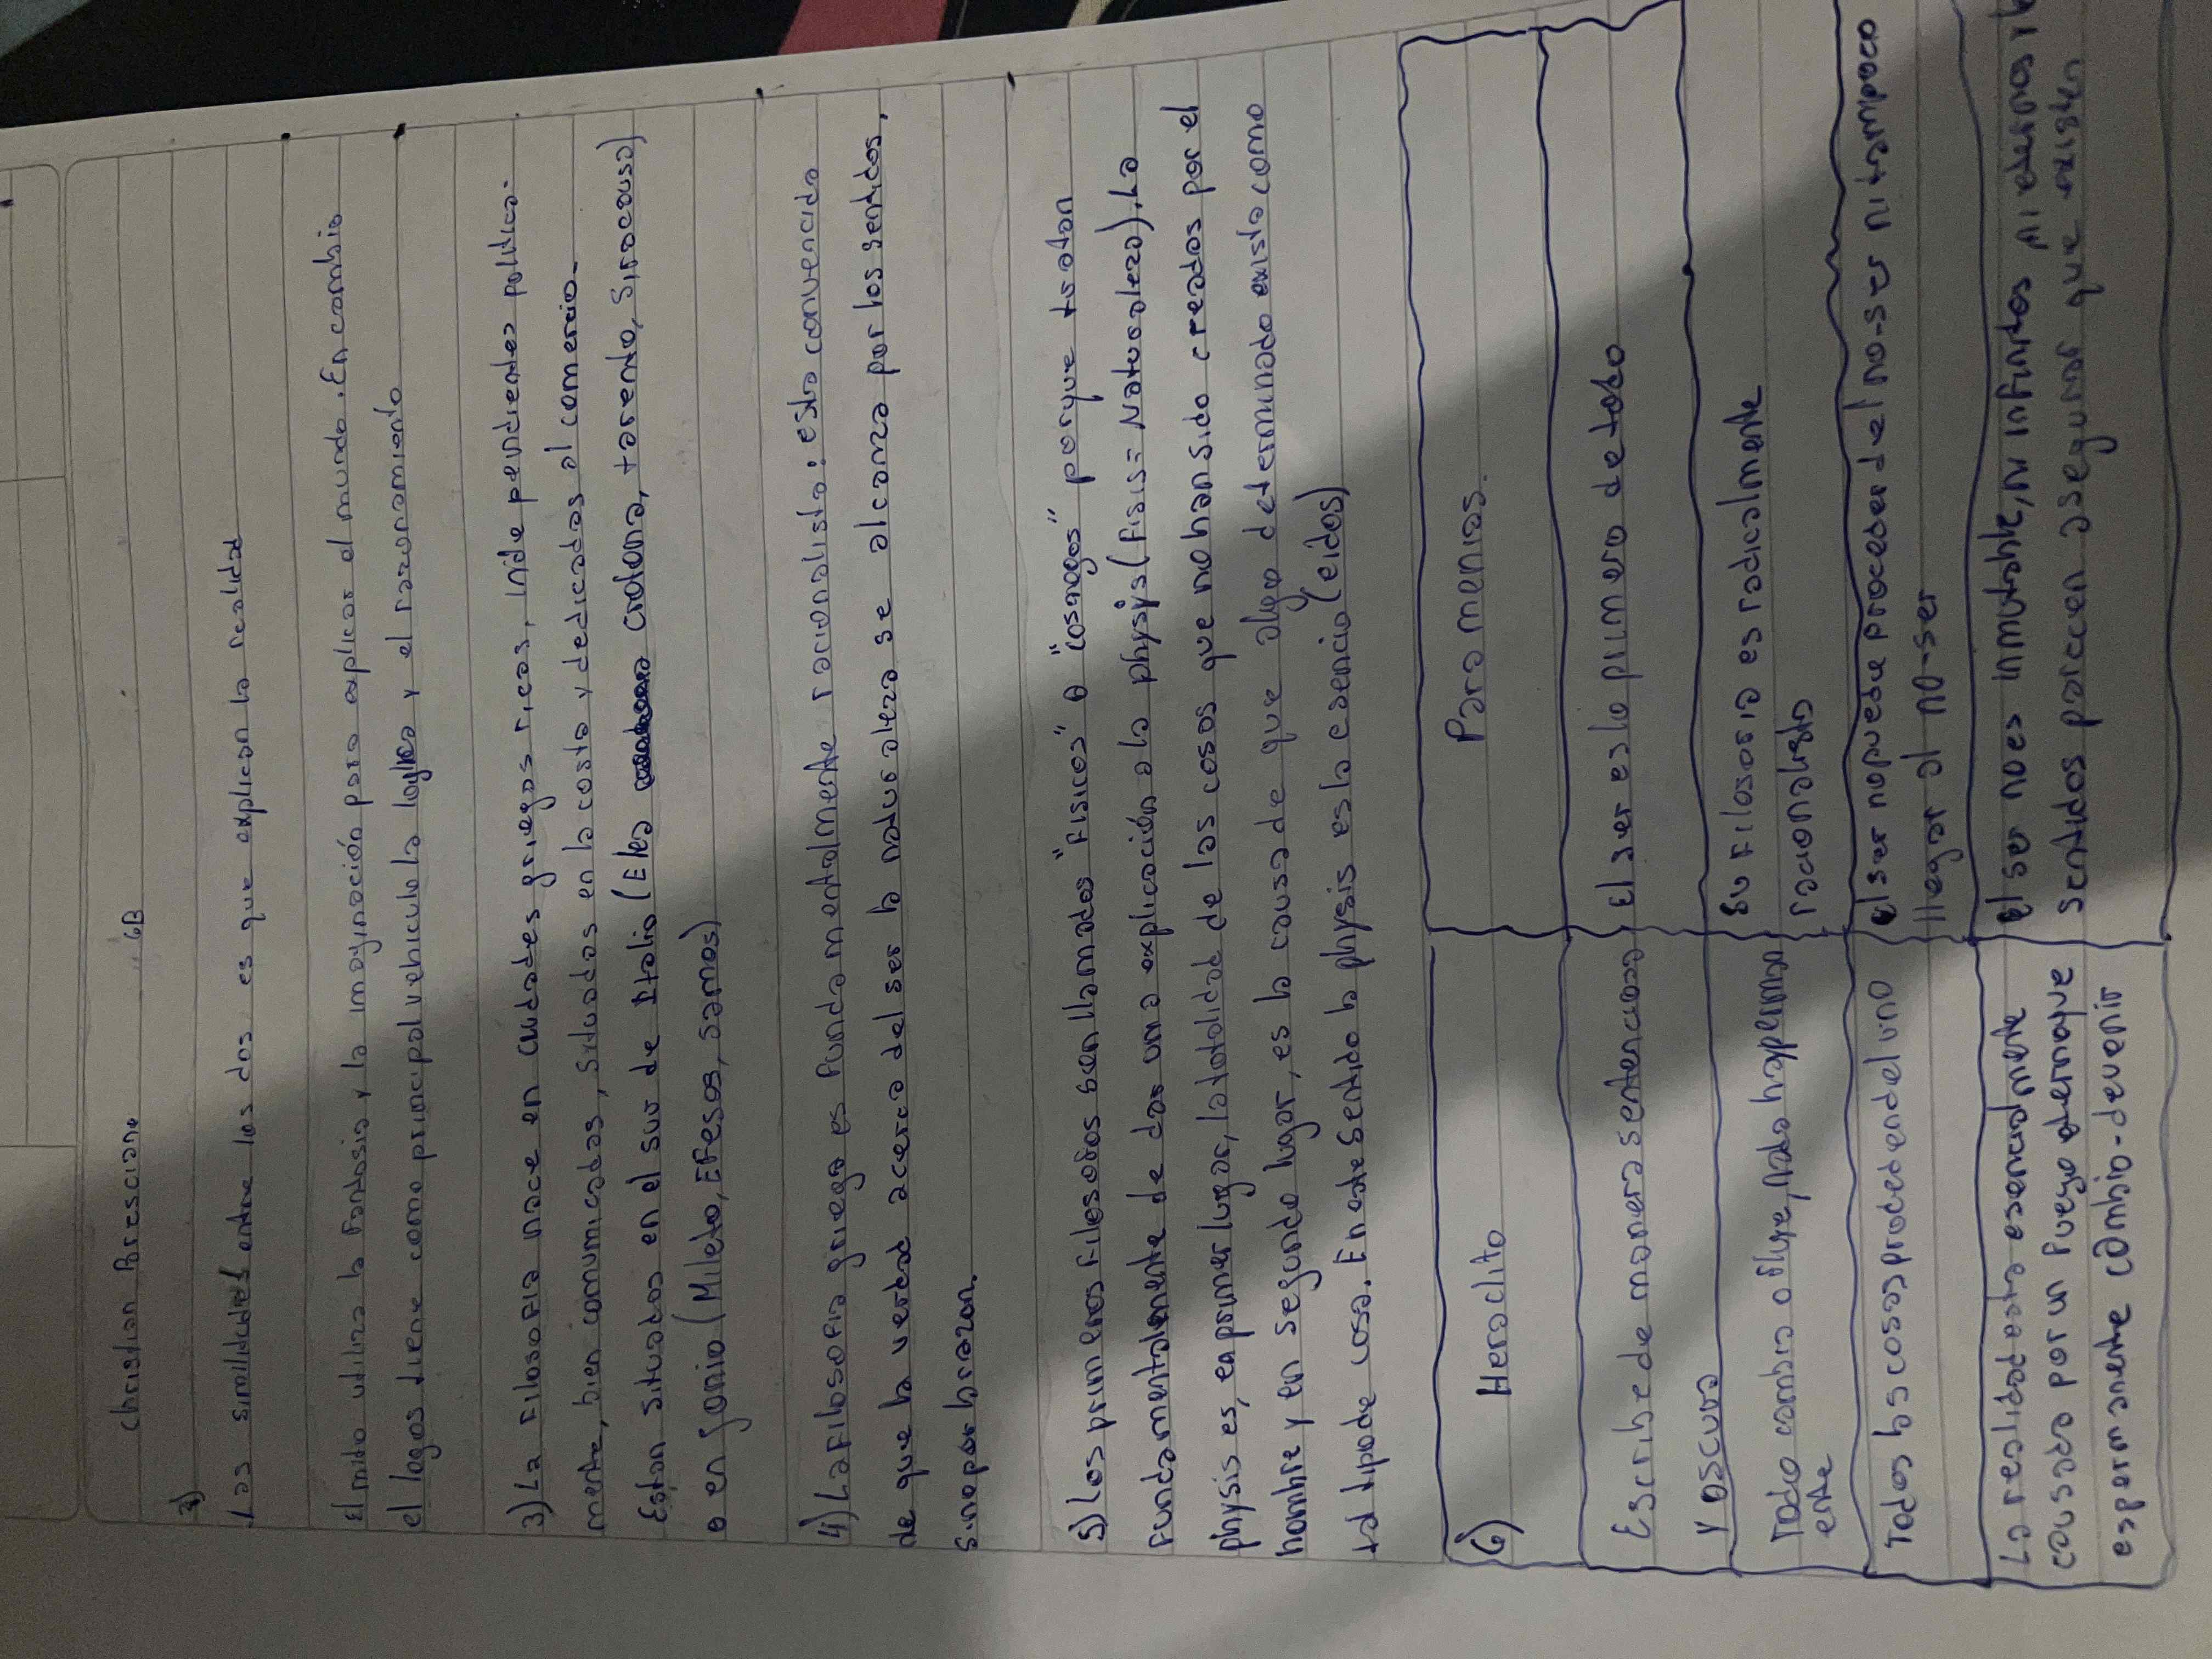 Christian Bresciane 6B
2)
Las similitudes entre los dos es que explican la realidad
El mito utiliza la fantasia y la imaginación para explicar el mundo. En cambio
el logos tiene como principal vehiculo la logica y el razonamiento
3) La filosofia nace en ciudades griegas ricas, independientes politica-
mente, bien comunicadas, situadas en la costa y dedicadas al comercio.
Estan situados en el sur de Italia (Elea crotona, tarento, Siracusa)
o en Jonia (Mileto, Efesos, Samos)
4) La filosofia griega es fundamentalmente racionalista: esta convencida
de que la verdad acerca del ser y naturaleza se alcanza por los sentidos,
sino por la razon.
5) Los primeros filosogos son llamados "fisicos" o "cosnogos" porque tratan
fundamentalmente de dar una explicación a la physis (fisis = Naturaleza). La
physis es, en primer lugar, la totalidad de las cosas que no han sido creadas por el
hombre y en segundo lugar, es la causa de que algo determinado exista como
tal tipo de cosa. En este sentido la physis es la esencia (eidos)
6) Heraclito Paramenias.
Escribe de manera sentenciosa El ser es lo primero de todo
y oscura
Todo cambia o fluye, nada hay perman Su filosofia es radicalmente
ente racionalista
Todas las cosas proceden del uno el ser no puede proceder del no-ser ni tampoco
llegar al no-ser
La realidad esta esencialmente El ser no es inmutable, ni infinitos ni eternos
causada por un fuego eterno que sentidos parecen asegurar que existen
es permanente cambio-devenir